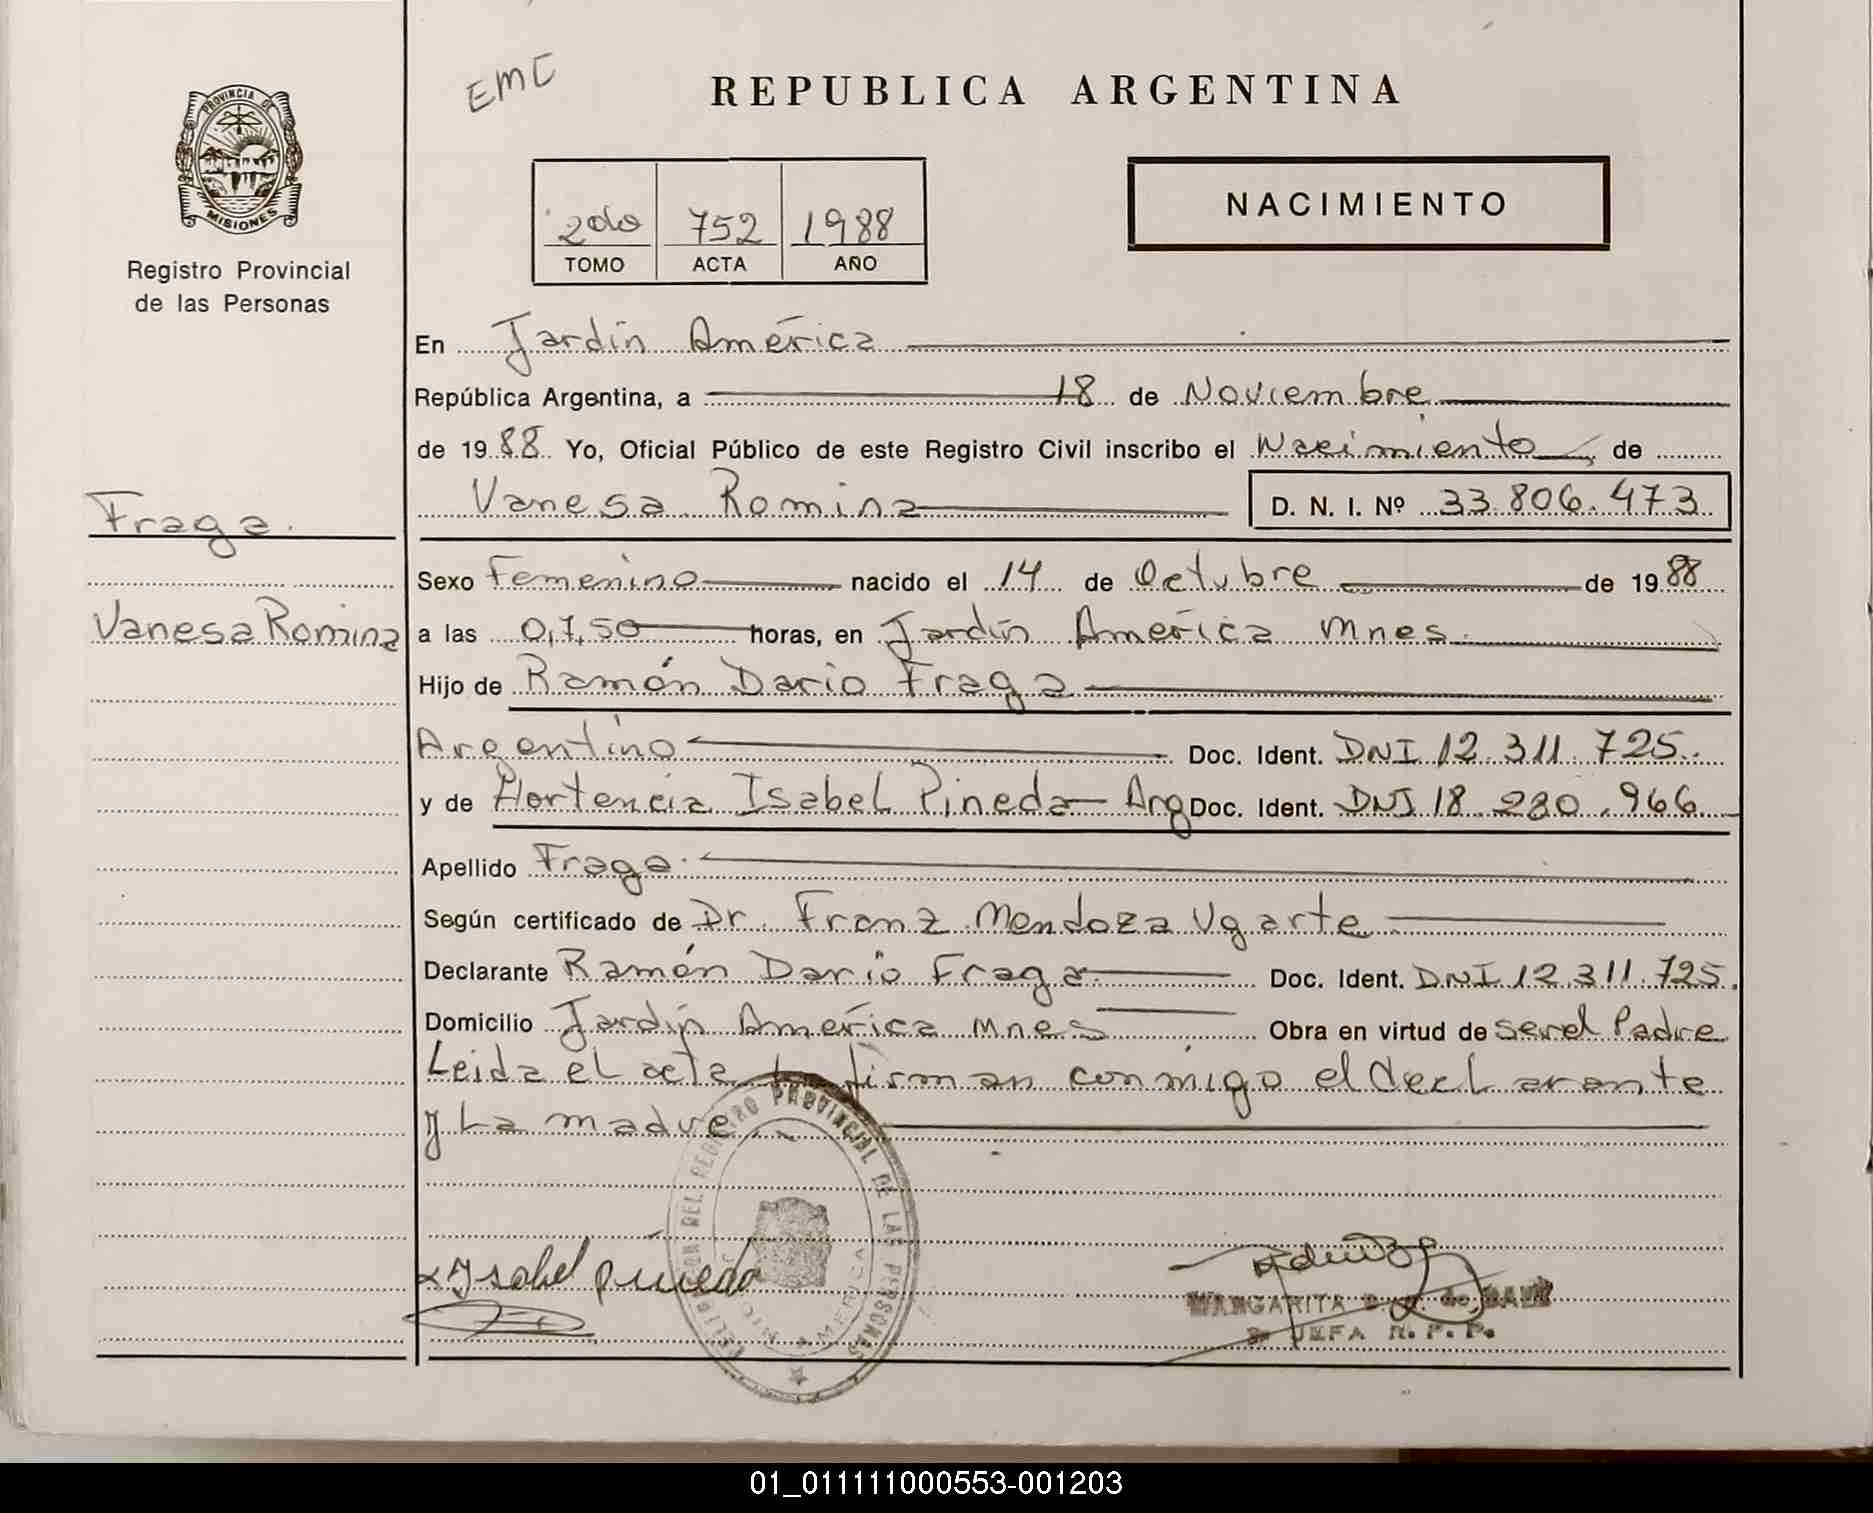 EMC
REPUBLICA ARGENTINA
PROVINCIA DE
MISIONES
Registro Provincial
de las Personas
2do 752 1988
TOMO ACTA AÑO
NACIMIENTO
En Jardín América
República Argentina, a 18 de Noviembre
de 1988 Yo, Oficial Público de este Registro Civil inscribo el Nacimiento de
Vanesa Romina D. N. I. Nº 33.806.473
Fraga
Vanesa Romina
Sexo Femenino nacido el 14 de Octubre de 1988
a las 07,50 horas, en Jardín América Mnes.
Hijo de Ramón Dario Fraga
Argentino Doc. Ident. DNI 12.311.725.
y de Hortencia Isabel Pineda Arg Doc. Ident. DNI 18.280.966
Apellido Fraga
Según certificado de Dr. Franz Mendoza Ugarte
Declarante Ramón Dario Fraga Doc. Ident. DNI 12.311.725.
Domicilio Jardín América Mnes Obra en virtud de ser el Padre
Leida el acta firman conmigo el declarante
y La madre
REGISTRO PROVINCIAL DE LAS PERSONAS
AMERICA
Isabel pineda
MARGARITA de BAEZ
JEFA R. P. P.
01_011111000553-001203